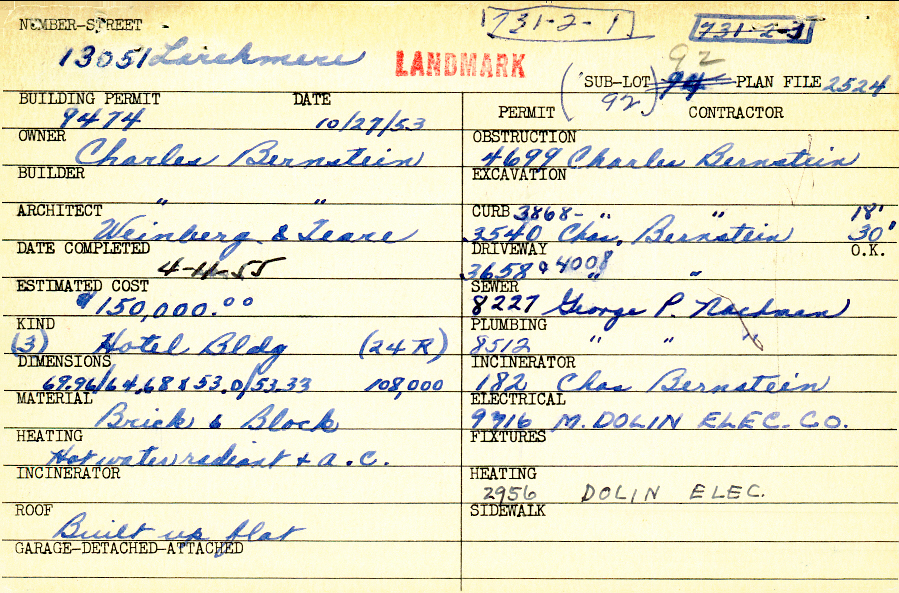 NUMBER-STREET - 731-2-1 731-2-3
13051 Larchmere LANDMARK 92
SUB-LOT 94 PLAN FILE 2524
(92)
BUILDING PERMIT DATE PERMIT CONTRACTOR
9474 10/27/53
OWNER OBSTRUCTION
Charles Bernstein 4699 Charles Bernstein
BUILDER EXCAVATION
" "
ARCHITECT CURB 3868- " " 18'
Weinberg & Teare 3540 Chas. Bernstein 30'
DATE COMPLETED DRIVEWAY O.K.
4-11-55 3658 & 4008 " "
ESTIMATED COST SEWER
$150,000.00 8227 George P. Nachman
KIND PLUMBING
(3) Hotel Bldg (24 R) 8512 " " "
DIMENSIONS INCINERATOR
69.96/64.68 x 53.0/53.33 108,000 182 Chas Bernstein
MATERIAL ELECTRICAL
Brick & Block 9716 M. DOLIN ELEC. CO.
HEATING FIXTURES
Hot water radiant & a.c.
INCINERATOR HEATING
2956 DOLIN ELEC.
ROOF SIDEWALK
Built up flat
GARAGE-DETACHED-ATTACHED